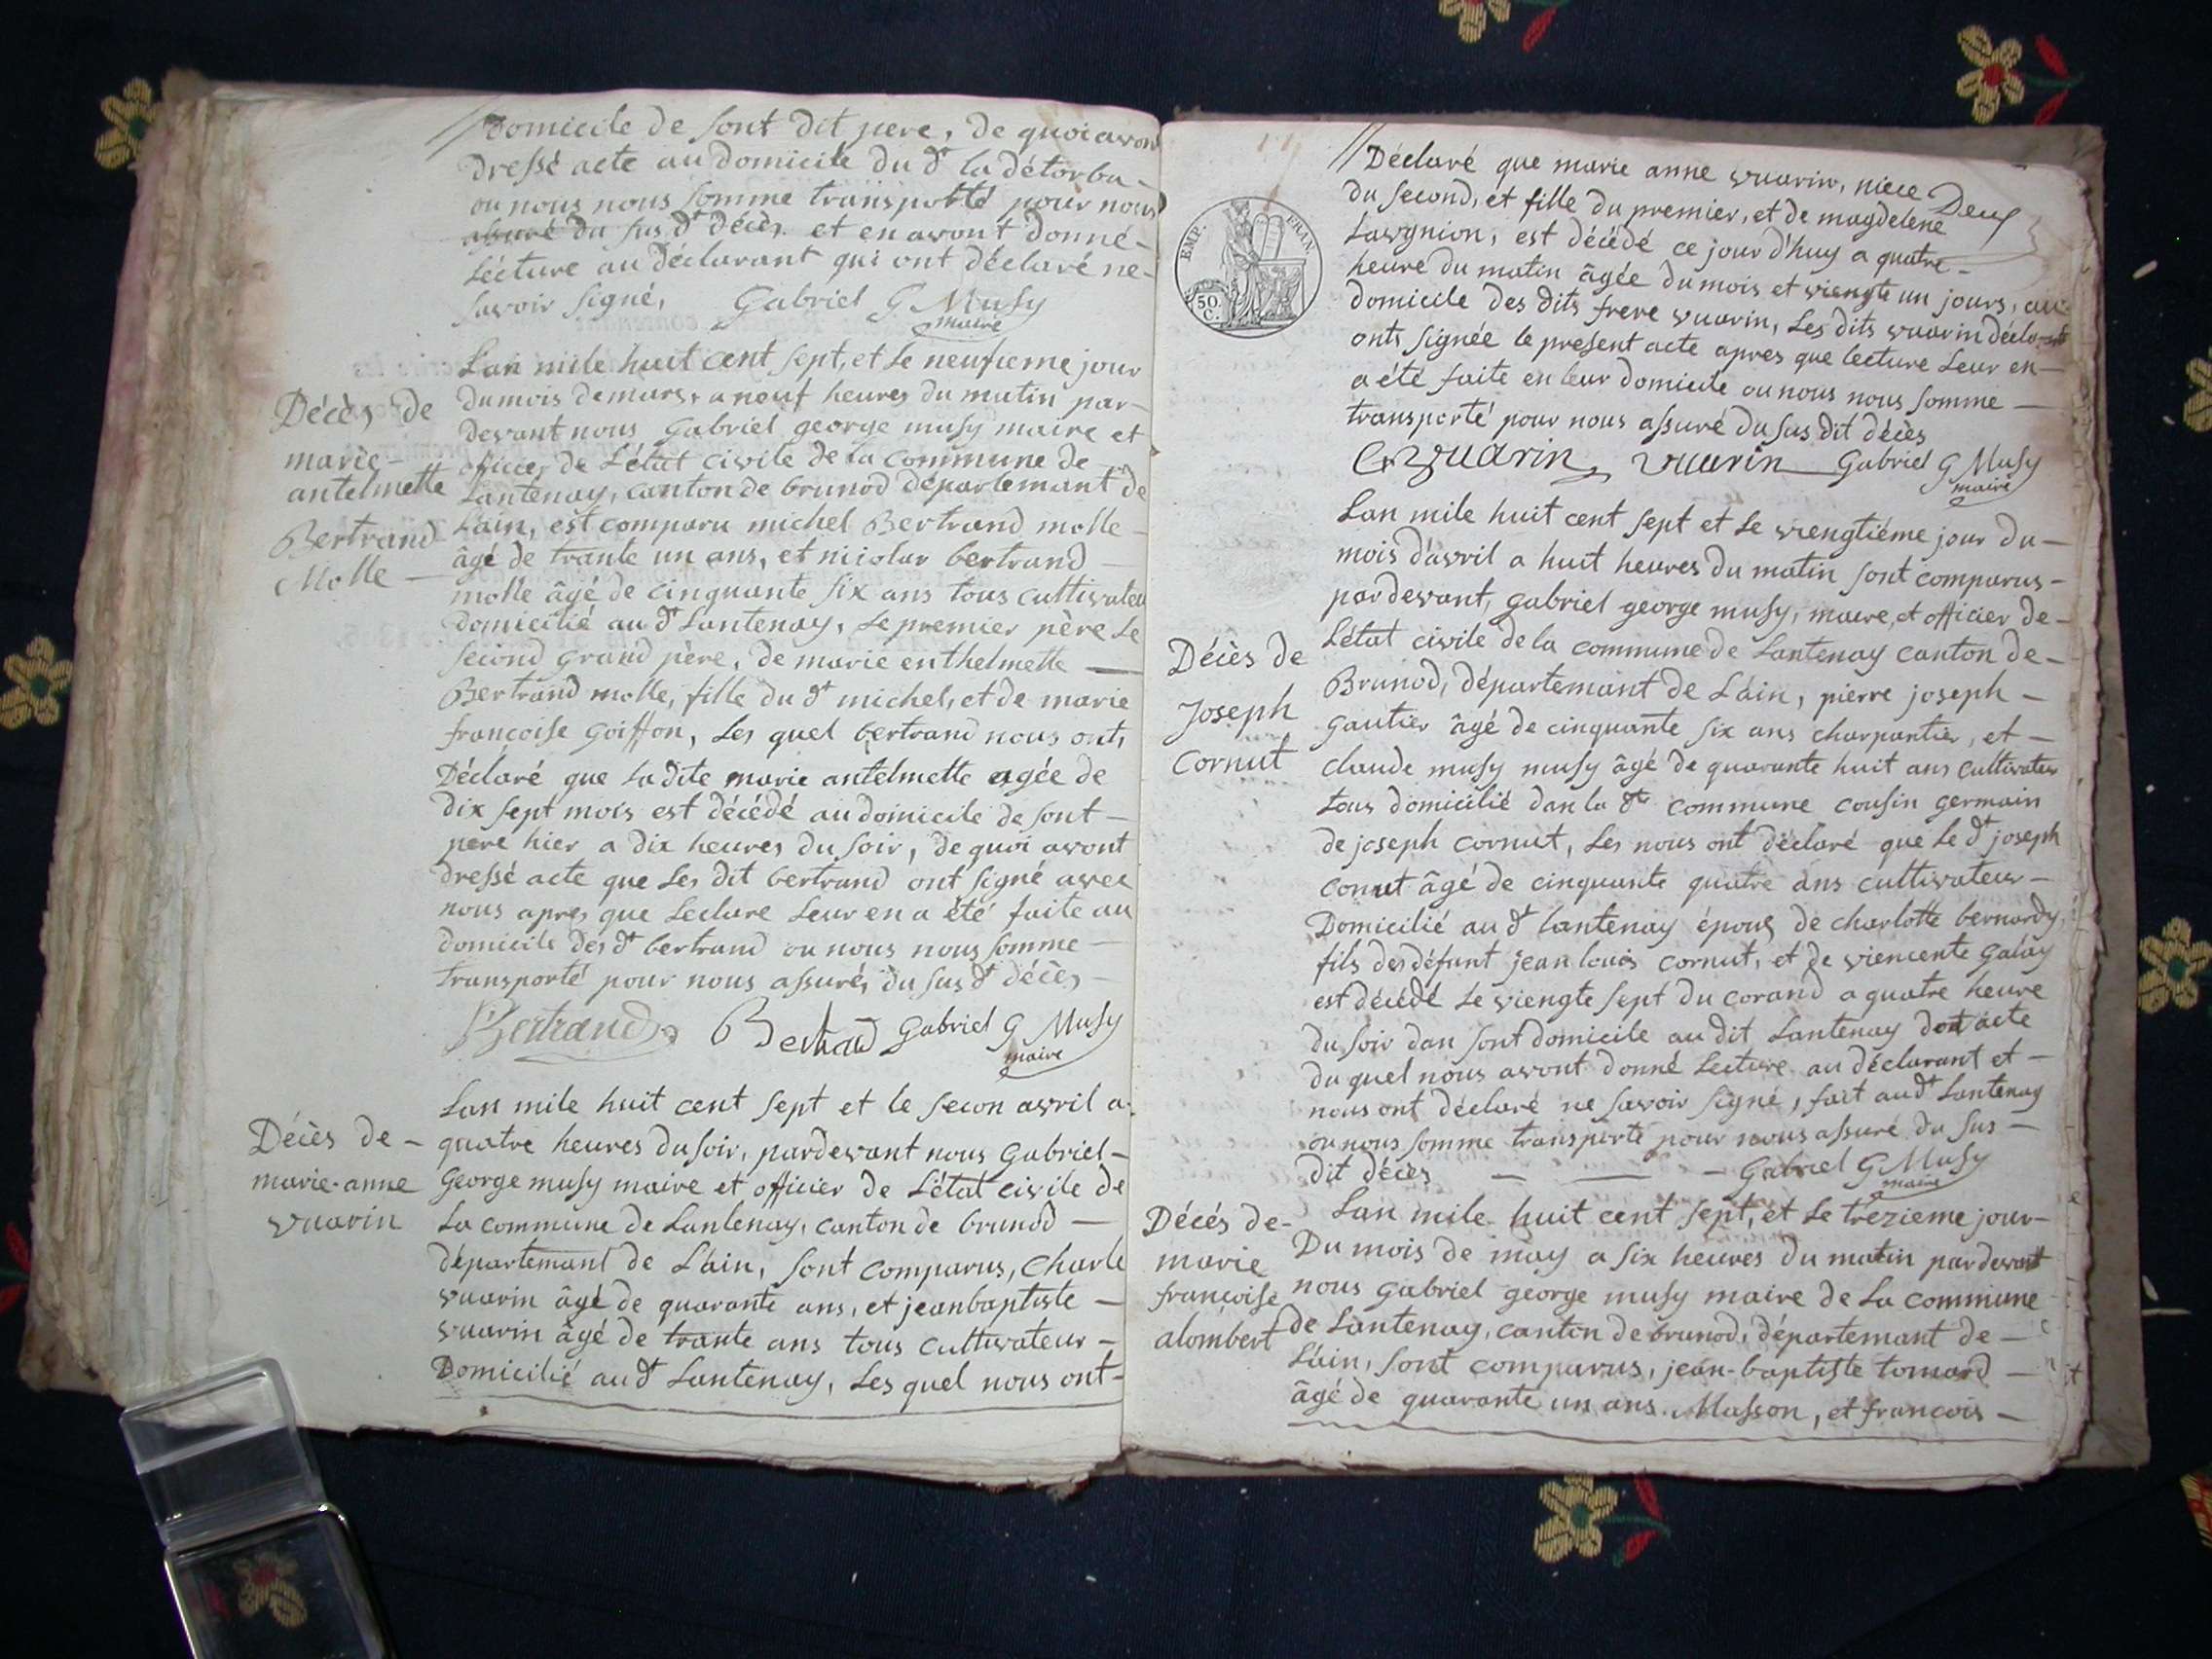 //Domicile de sont dit pere, de quoi avon
dressé acte au domicile du dt la détorba-
ou nous nous somme transporté pour nous
assuré du sus dt décès et en avont donné-
Lécture au déclarant qui ont déclaré ne-
savoir signé, Gabriel G Musy
maire
Décès de
marie-
antelmette
Bertrand
Molle
Lan mile huit cent sept, et le neufieme jour
du mois de mars, a neuf heures du matin par-
devant nous Gabriel george musy maire et
officier de L'état civile de la commune de
Lantenay, canton de brunod département de
L'ain, est comparu michel Bertrand molle-
âgé de trante un ans, et nicolas bertrand
molle âgé de cinquante six ans tous cultivateu
domicilié au dt Lantenay, Le premier père Le
second grand père, de marie enthelmette
Bertrand molle, fille du dt michel, et de marie
francoise goiffon, Les quel bertrand nous ont,
Déclaré que la dite marie antelmette agée de
dix sept mois est décédé au domicile de sont-
pere hier a dix heures du soir, de quoi avont
dressé acte que Les dit bertrand ont signé avec
nous apres que Lecture Leur en a été faite au
domicile des dt bertrand ou nous nous somme-
transporté pour nous assuré, du sus dt décès-
Bertrand Bertrand Gabriel G Musy
maire
Décès de -
marie-anne
vuarin
Lan mile huit cent sept et le secon avril a
quatre heures du soir, pardevant nous Gabriel-
George musy maire et officier de L'état civile de
La commune de Lantenay, canton de brunod -
département de L'ain, sont comparus, Charle
vuarin âgé de quarante ans, et jean baptiste -
vuarin âgé de trante ans tous cultivateur -
Domicilié au dt Lantenay, Les quel nous ont-
EMP. FRAN.
50.
C.
Deux
//Déclaré que marie anne vuarin, niece
du second, et fille du premier, et de magdelene
Lavgnion, est décédé ce jour d'huy a quatre-
heure du matin âgée du mois et viengte un jours, au
domicile des dits frere vuarin, Les dits vuarin décla
onts signée le present acte apres que lecture Leur en-
a été faite en leur domicile ou nous nous somme-
transporté pour nous assuré du sus dit décès
vuarin Gabriel G Musy
maire
Décès de
Joseph
Cornut
Lan mile huit cent sept et Le viengtiéme jour du-
mois d'avril a huit heures du matin sont comparus-
par devant, gabriel george musy, maire, et officier de-
L'état civile de la commune de Lantenay canton de-
Brunod, département de L'ain, pierre joseph-
gautier âgé de cinquante six ans charpantier, et-
claude musy musy âgé de quarante huit ans cultivateur
tous domicilié dan la dte commune cousin germain
de joseph cornut, Les nous ont déclaré que Le dt joseph
conut âgé de cinquante quatre ans cultivateur-
Domicilié au dt lantenay époux de charlotte bernardy,
fils des défunt jean louis cornut, et de viencente galay
est décédé Le viengte sept du corand a quatre heure
du soir dan sont domicile au dit Lantenay dont acte
du quel nous avont donné Lecture au déclarant et-
nous ont déclaré ne savoir signé, fait au dt Lantenay
ou nous somme transporté pour nous assuré du sus-
dit décès - Gabriel G Musy
maire
Décés de-
marie
francoise
alombert
Lan mile huit cent sept, et Le trézieme jour-
Du mois de may a six heures du matin pardevant
nous Gabriel george musy maire de La commune
de Lantenay, canton de brunod, département de-
L'ain, sont comparus, jean-baptiste tomard-
âgé de quarante un ans Masson, et francois-